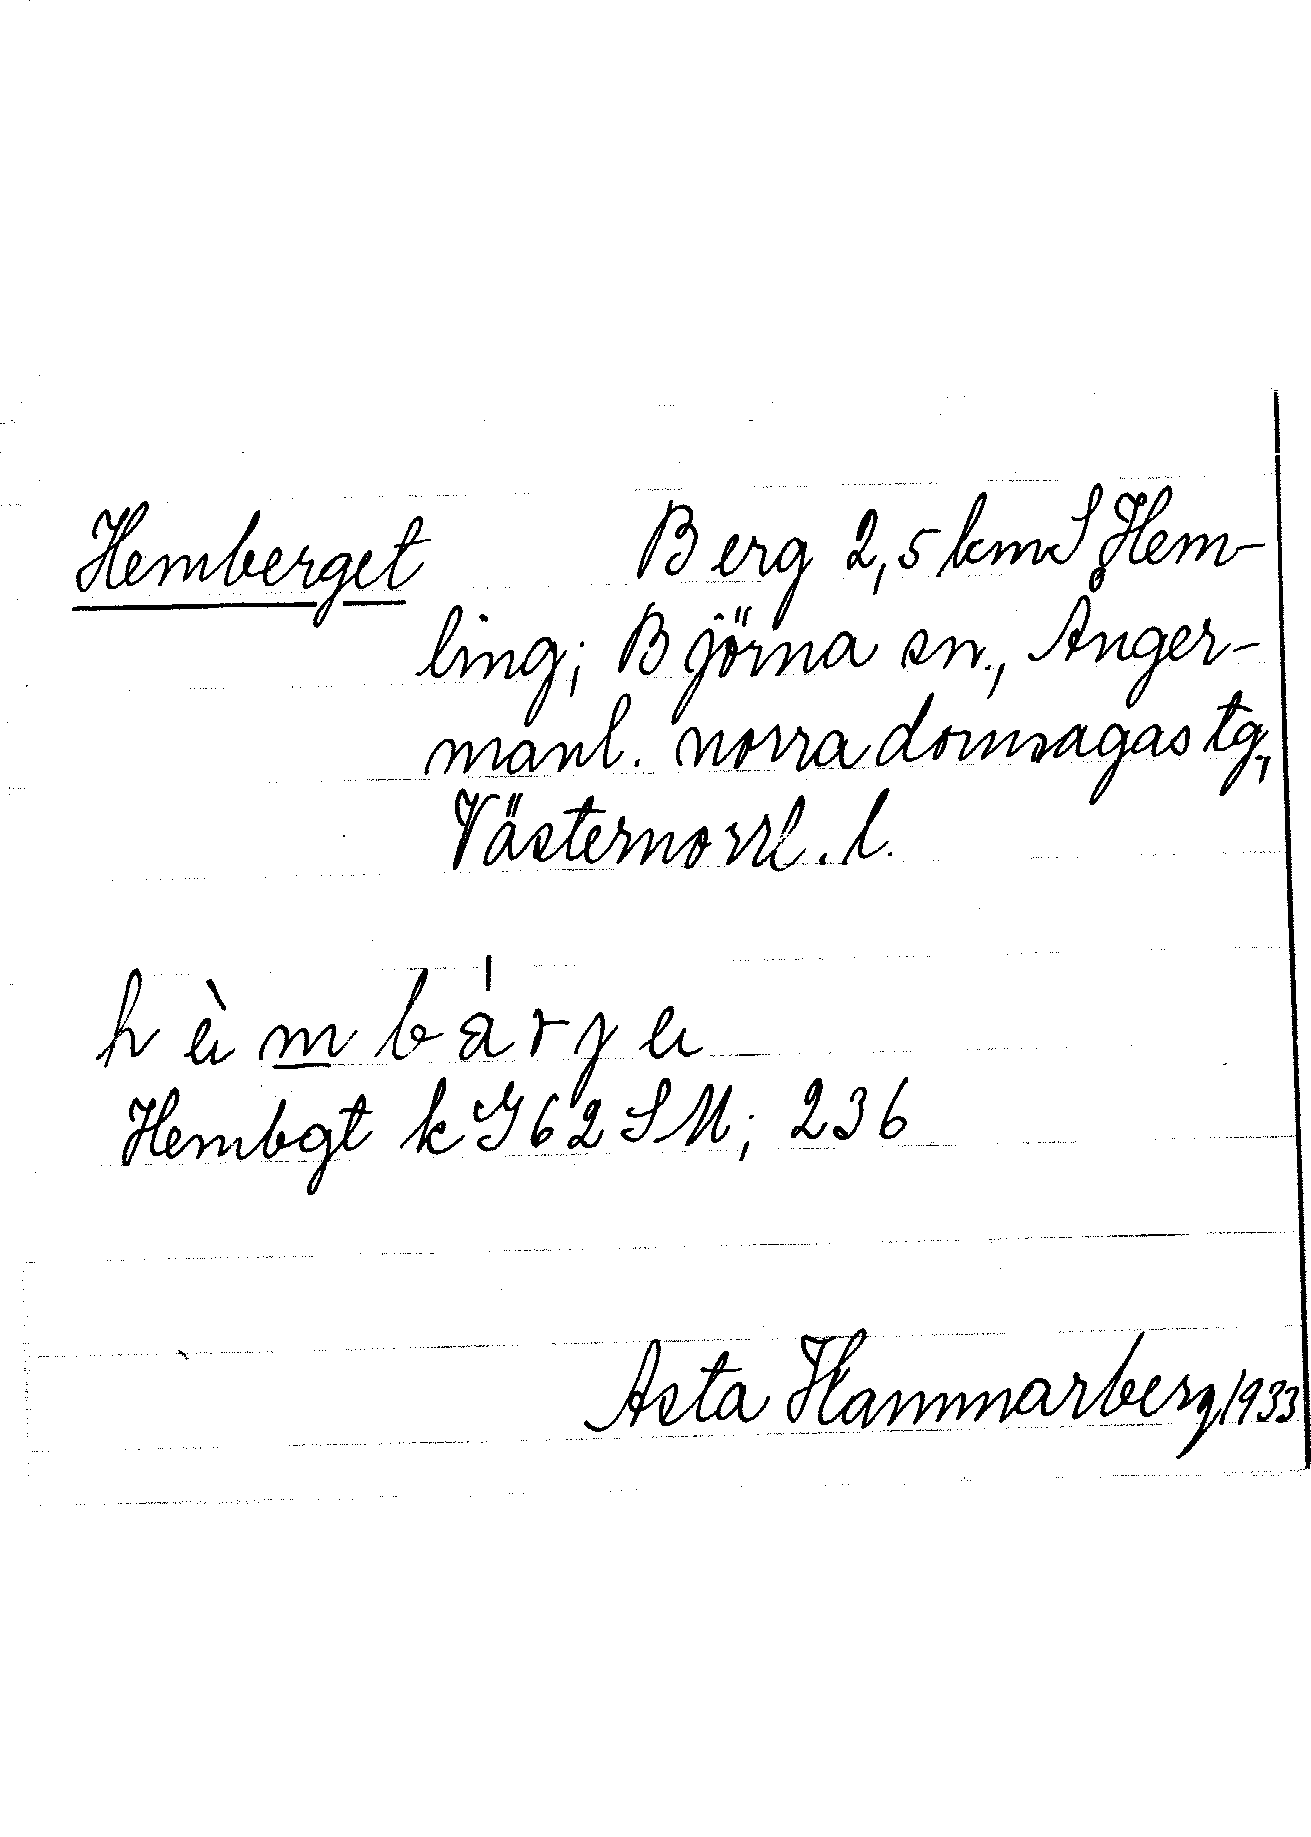 Hemberget Berg 2,5 km S Hem-
ling; Björna sn., Ånger-
manl. norra domsagas tg,
Västernorrl. l.
hèmbárje
Hembgt k G62SM; 236
Asta Hammarberg 1933